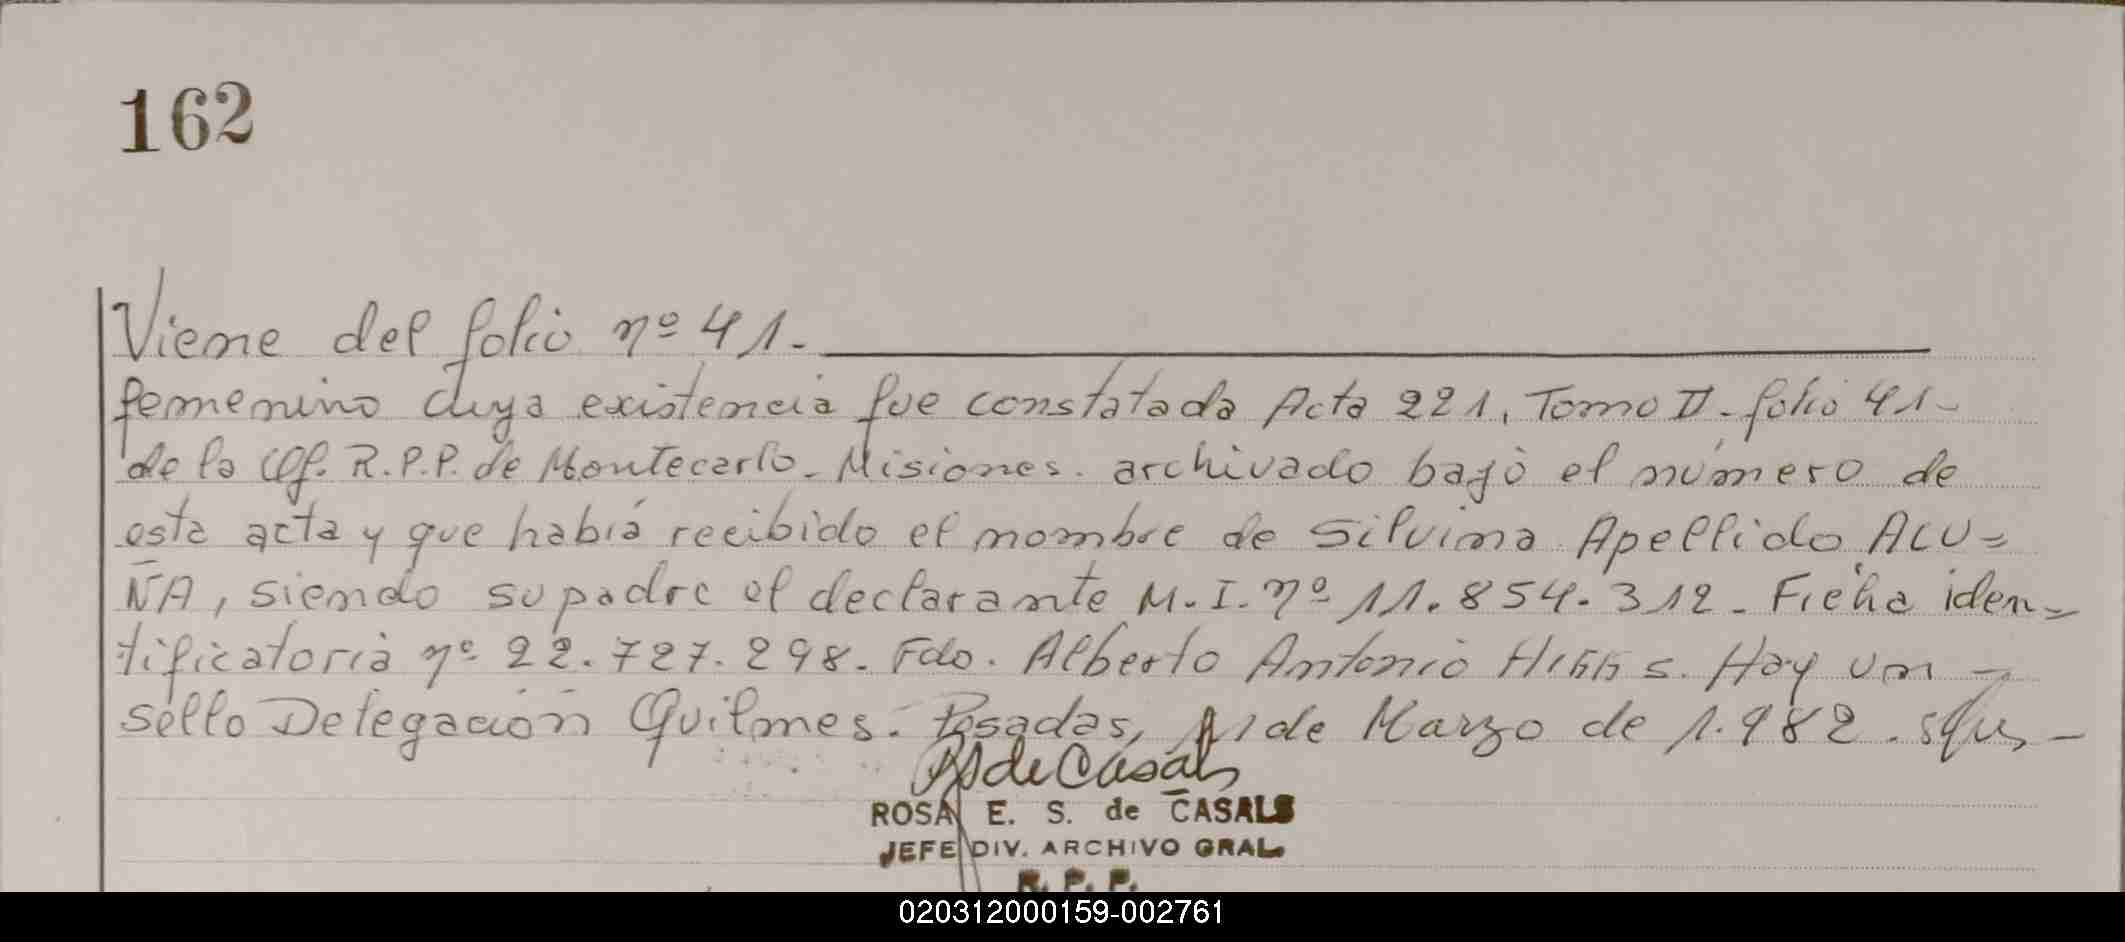 162
Viene del folio nº 41.-
femenino cuya existencia fue constatada Acta 221, Tomo II - folio 41-
de la Of. R.P.P. de Montecarlo - Misiones. archivado bajo el número de
esta acta y que había recibido el nombre de Silvina Apellido ACU=
ÑA, siendo su padre el declarante M.I. nº 11.854.312 - Ficha iden=
tificatoria nº 22.727.298. Fdo. Alberto Antonio Hay un -
sello Delegación Quilmes. Posadas, de Marzo de 1.982.
de Casals
ROSA E. S. de CASALS
JEFE DIV. ARCHIVO GRAL.
R. P. P.
020312000159-002761